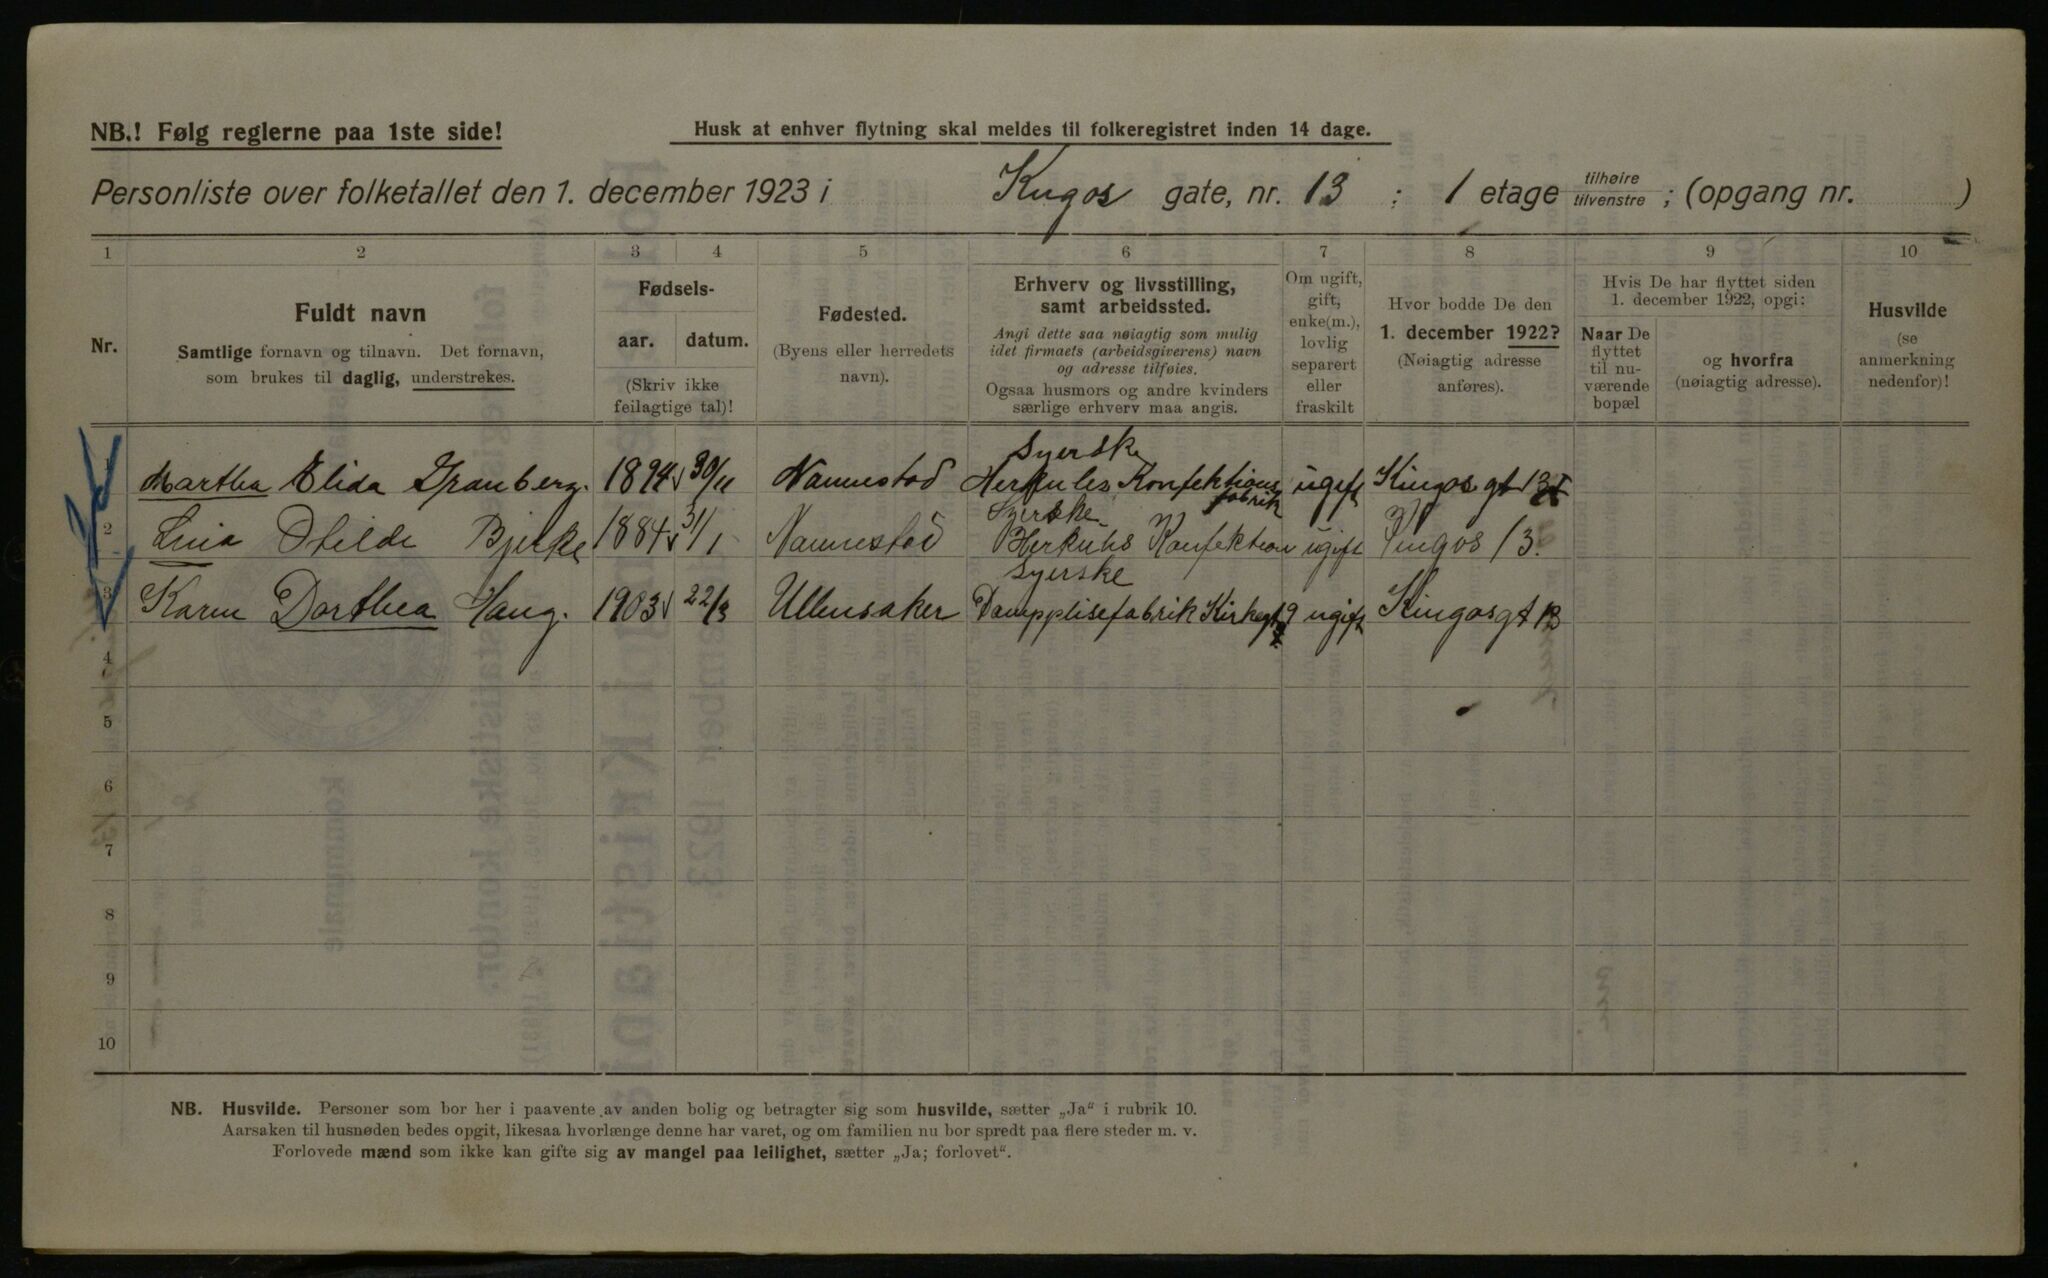 NB.! Følg reglerne paa 1ste side!
Husk at enhver flytning skal meldes til folkeregistret inden 14 dage.
Personliste over folketallet den 1. december 1923 i Kingos gate, nr. 13 ; 1 etage tilhøire tilvenstre ; (opgang nr. )
1 2 3 4 5 6 7 8 9 10
Nr.
Fuldt navn
Samtlige fornavn og tilnavn. Det fornavn,
som brukes til daglig, understrekes.
Fødsels-
aar. datum.
(Skriv ikke
feilagtige tal)!
Fødested.
(Byens eller herredets
navn).
Erhverv og livsstilling,
samt arbeidssted.
Angi dette saa nøiagtig som mulig
idet firmaets (arbeidsgiverens) navn
og adresse tilføies.
Ogsaa husmors og andre kvinders
særlige erhverv maa angis.
Om ugift,
gift,
enke(m.),
lovlig
separert
eller
fraskilt
Hvor bodde De den
1. december 1922?
(Nøiagtig adresse
anføres).
Hvis De har flyttet siden
1. december 1922, opgi:
Naar De
flyttet
til nu-
værende
bopæl
og hvorfra
(nøiagtig adresse).
Husvilde
(se
anmerkning
nedenfor)!
Syerske
1 Martha Elida Granberg. 1894 30/11 Nannestad Herkules Konfektions fabrik ugift Kingos gt 13
Syerske
2 Lina Otilde Bjerke 1884 31/1 Nannestad Herkules Konfektion ugift Kingos 13.
Syerske
3 Karen Dorthea Haug. 1903 22/3 Ullensaker Dampplisefabrik Kirkegt 9 ugift Kingosgt 13
4
5
6
7
8
9
10
NB. Husvilde. Personer som bor her i paavente av anden bolig og betragter sig som husvilde, sætter „Ja“ i rubrik 10.
Aarsaken til husnøden bedes opgit, likesaa hvorlænge denne har varet, og om familien nu bor spredt paa flere steder m. v.
Forlovede mænd som ikke kan gifte sig av mangel paa leilighet, sætter „Ja; forlovet“.